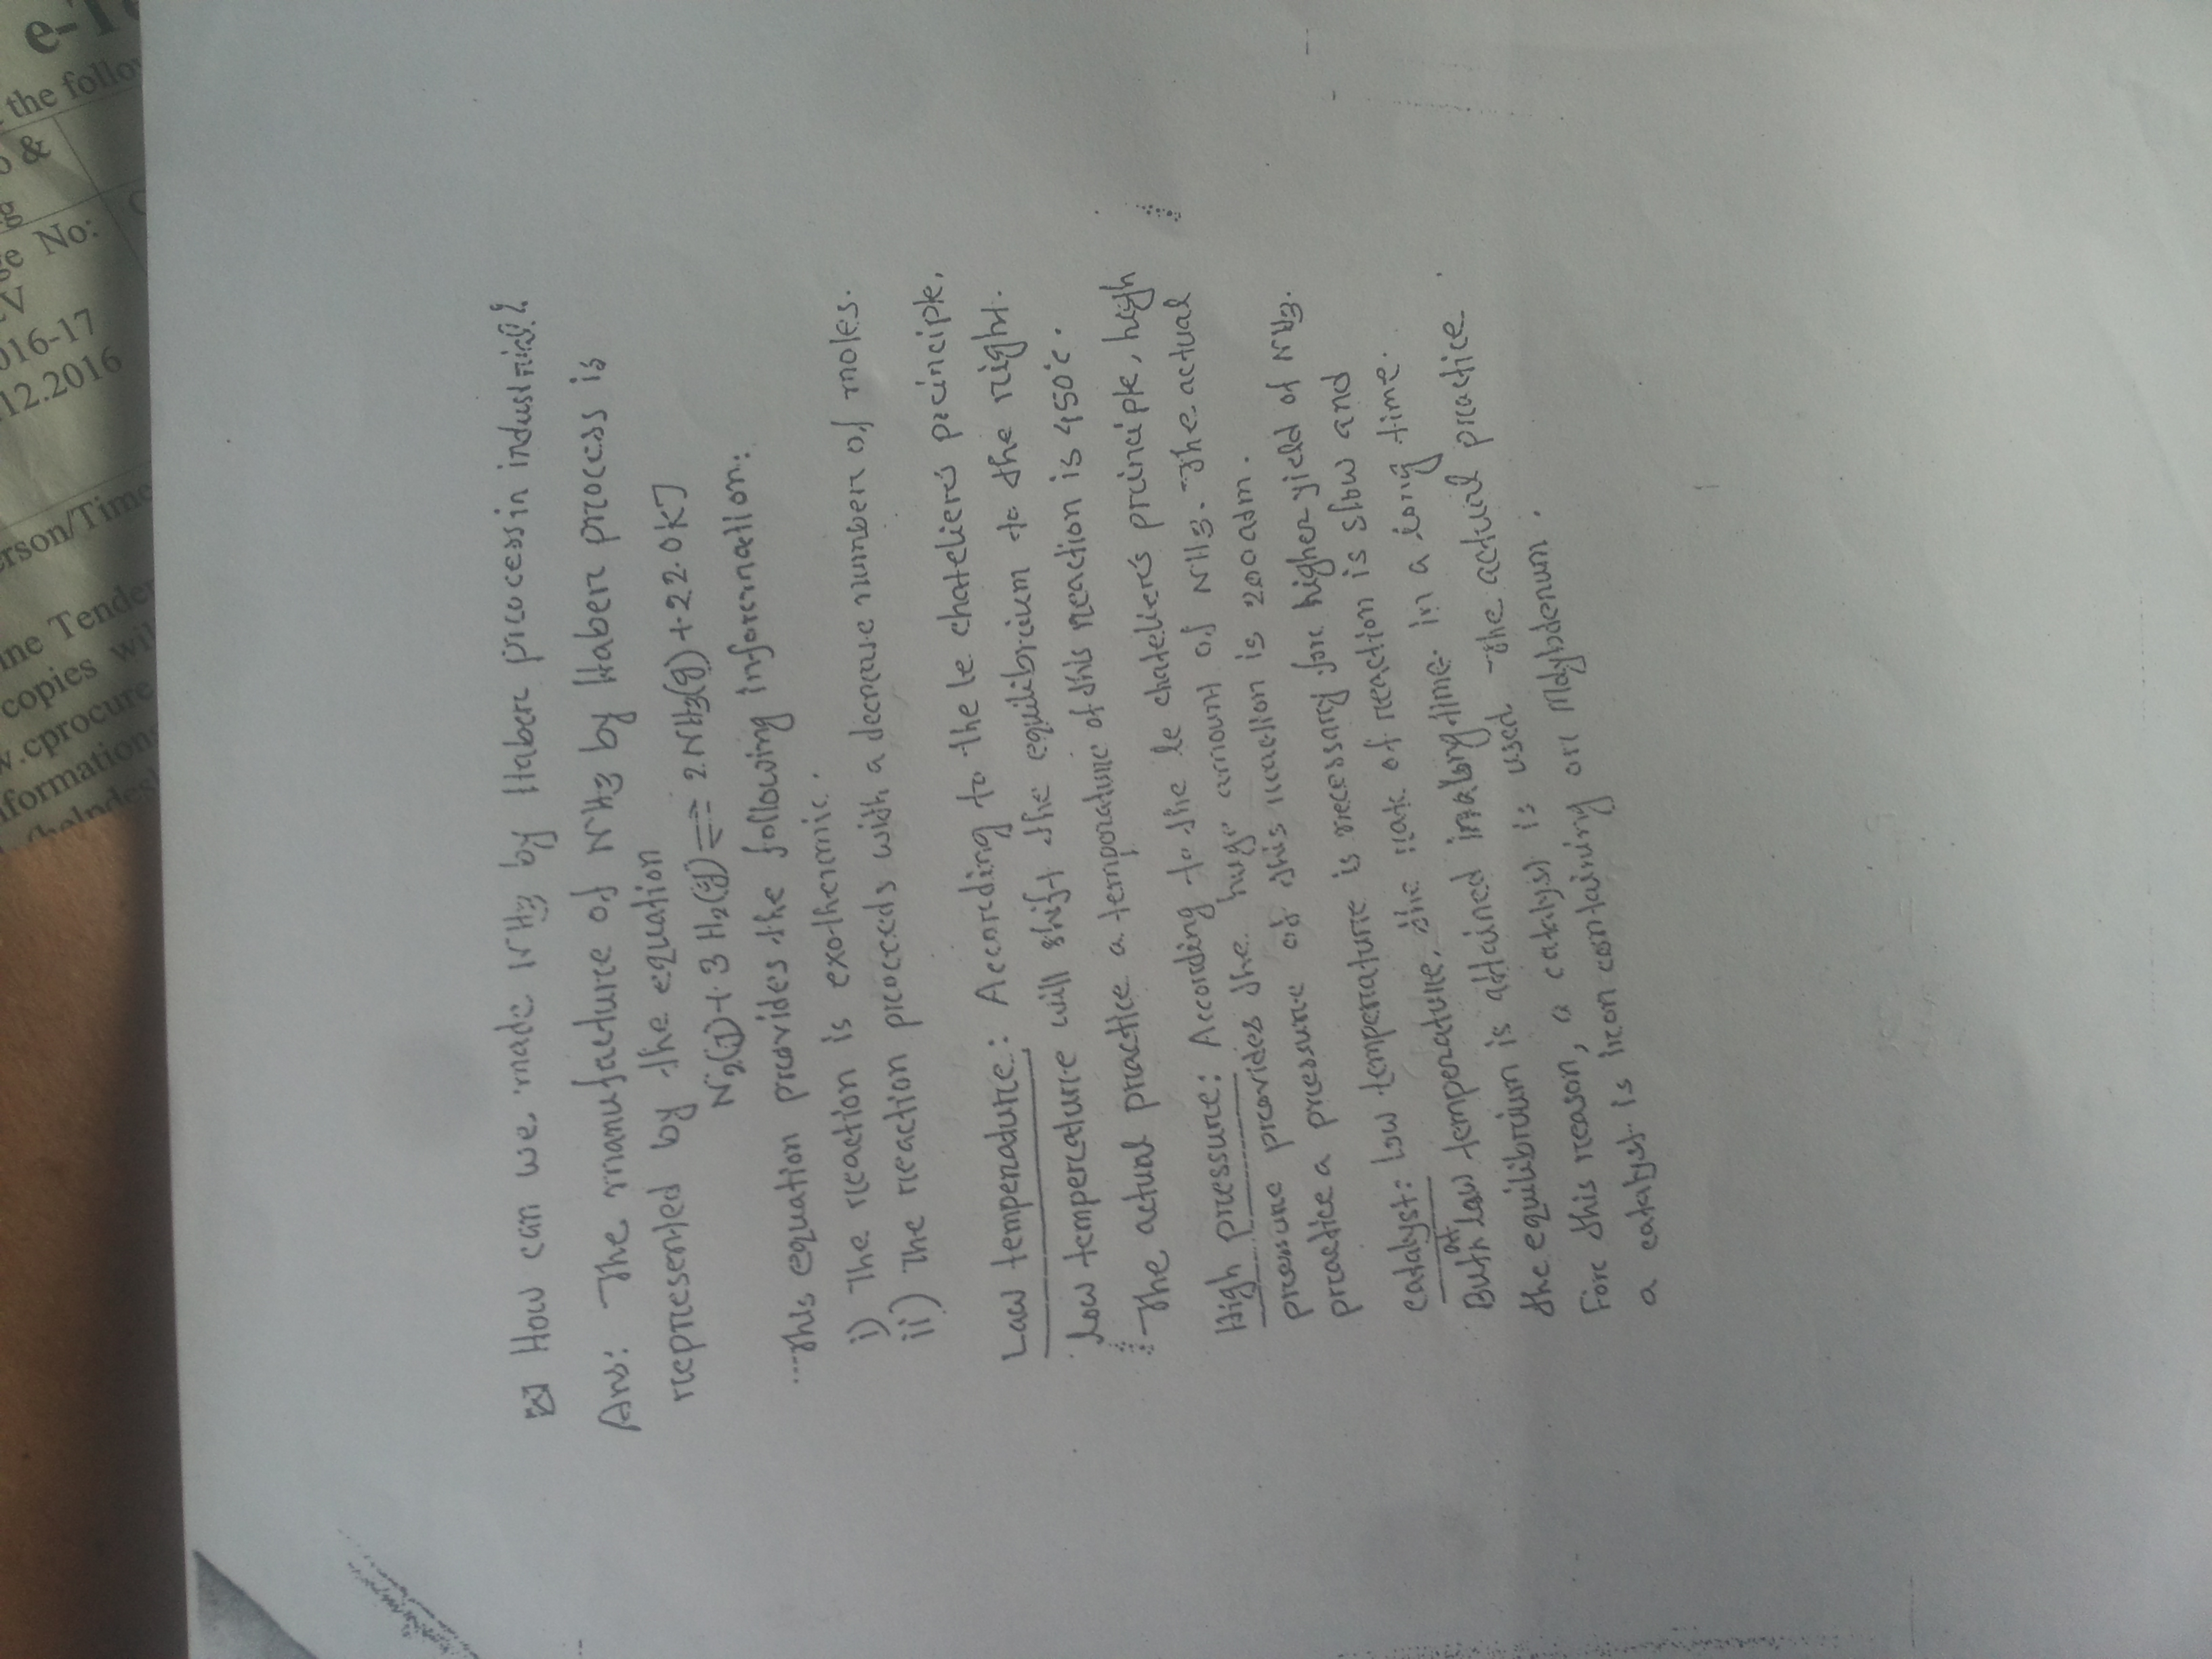 e-T
the follo
& 
g
No:
016-17
12.2016
erson/Time
ine Tender
copies wil
w.cprocure
formation
How can we made NH3 by Haber process in industrial?
Ans: The manufacture of NH3 by Haber process is
represented by the equation
N2(g) + 3 H2(g) ⇌ 2NH3(g) + 22.0KJ
This equation provides the following information:
i) The reaction is exothermic.
ii) The reaction proceeds with a decrease number of moles.
Law temperature: According to the le chatelier's principle,
low temperature will shift the equilibrium to the right.
The actual practice a temporature of this reaction is 450°c.
High pressure: According to the le chatelier's principle, high
pressure provides the huge amount of NH3. The actual
practice a pressure of this reaction is 200atm.
catalyst: Low temperature is necessary for higher yield of NH3.
But at law temperature, the rate of reaction is slow and
the equilibrium is attained in a long time. in a long time.
For this reason, a catalyst is used. The actual practice
a catalyst is iron containing or Molybdenum.